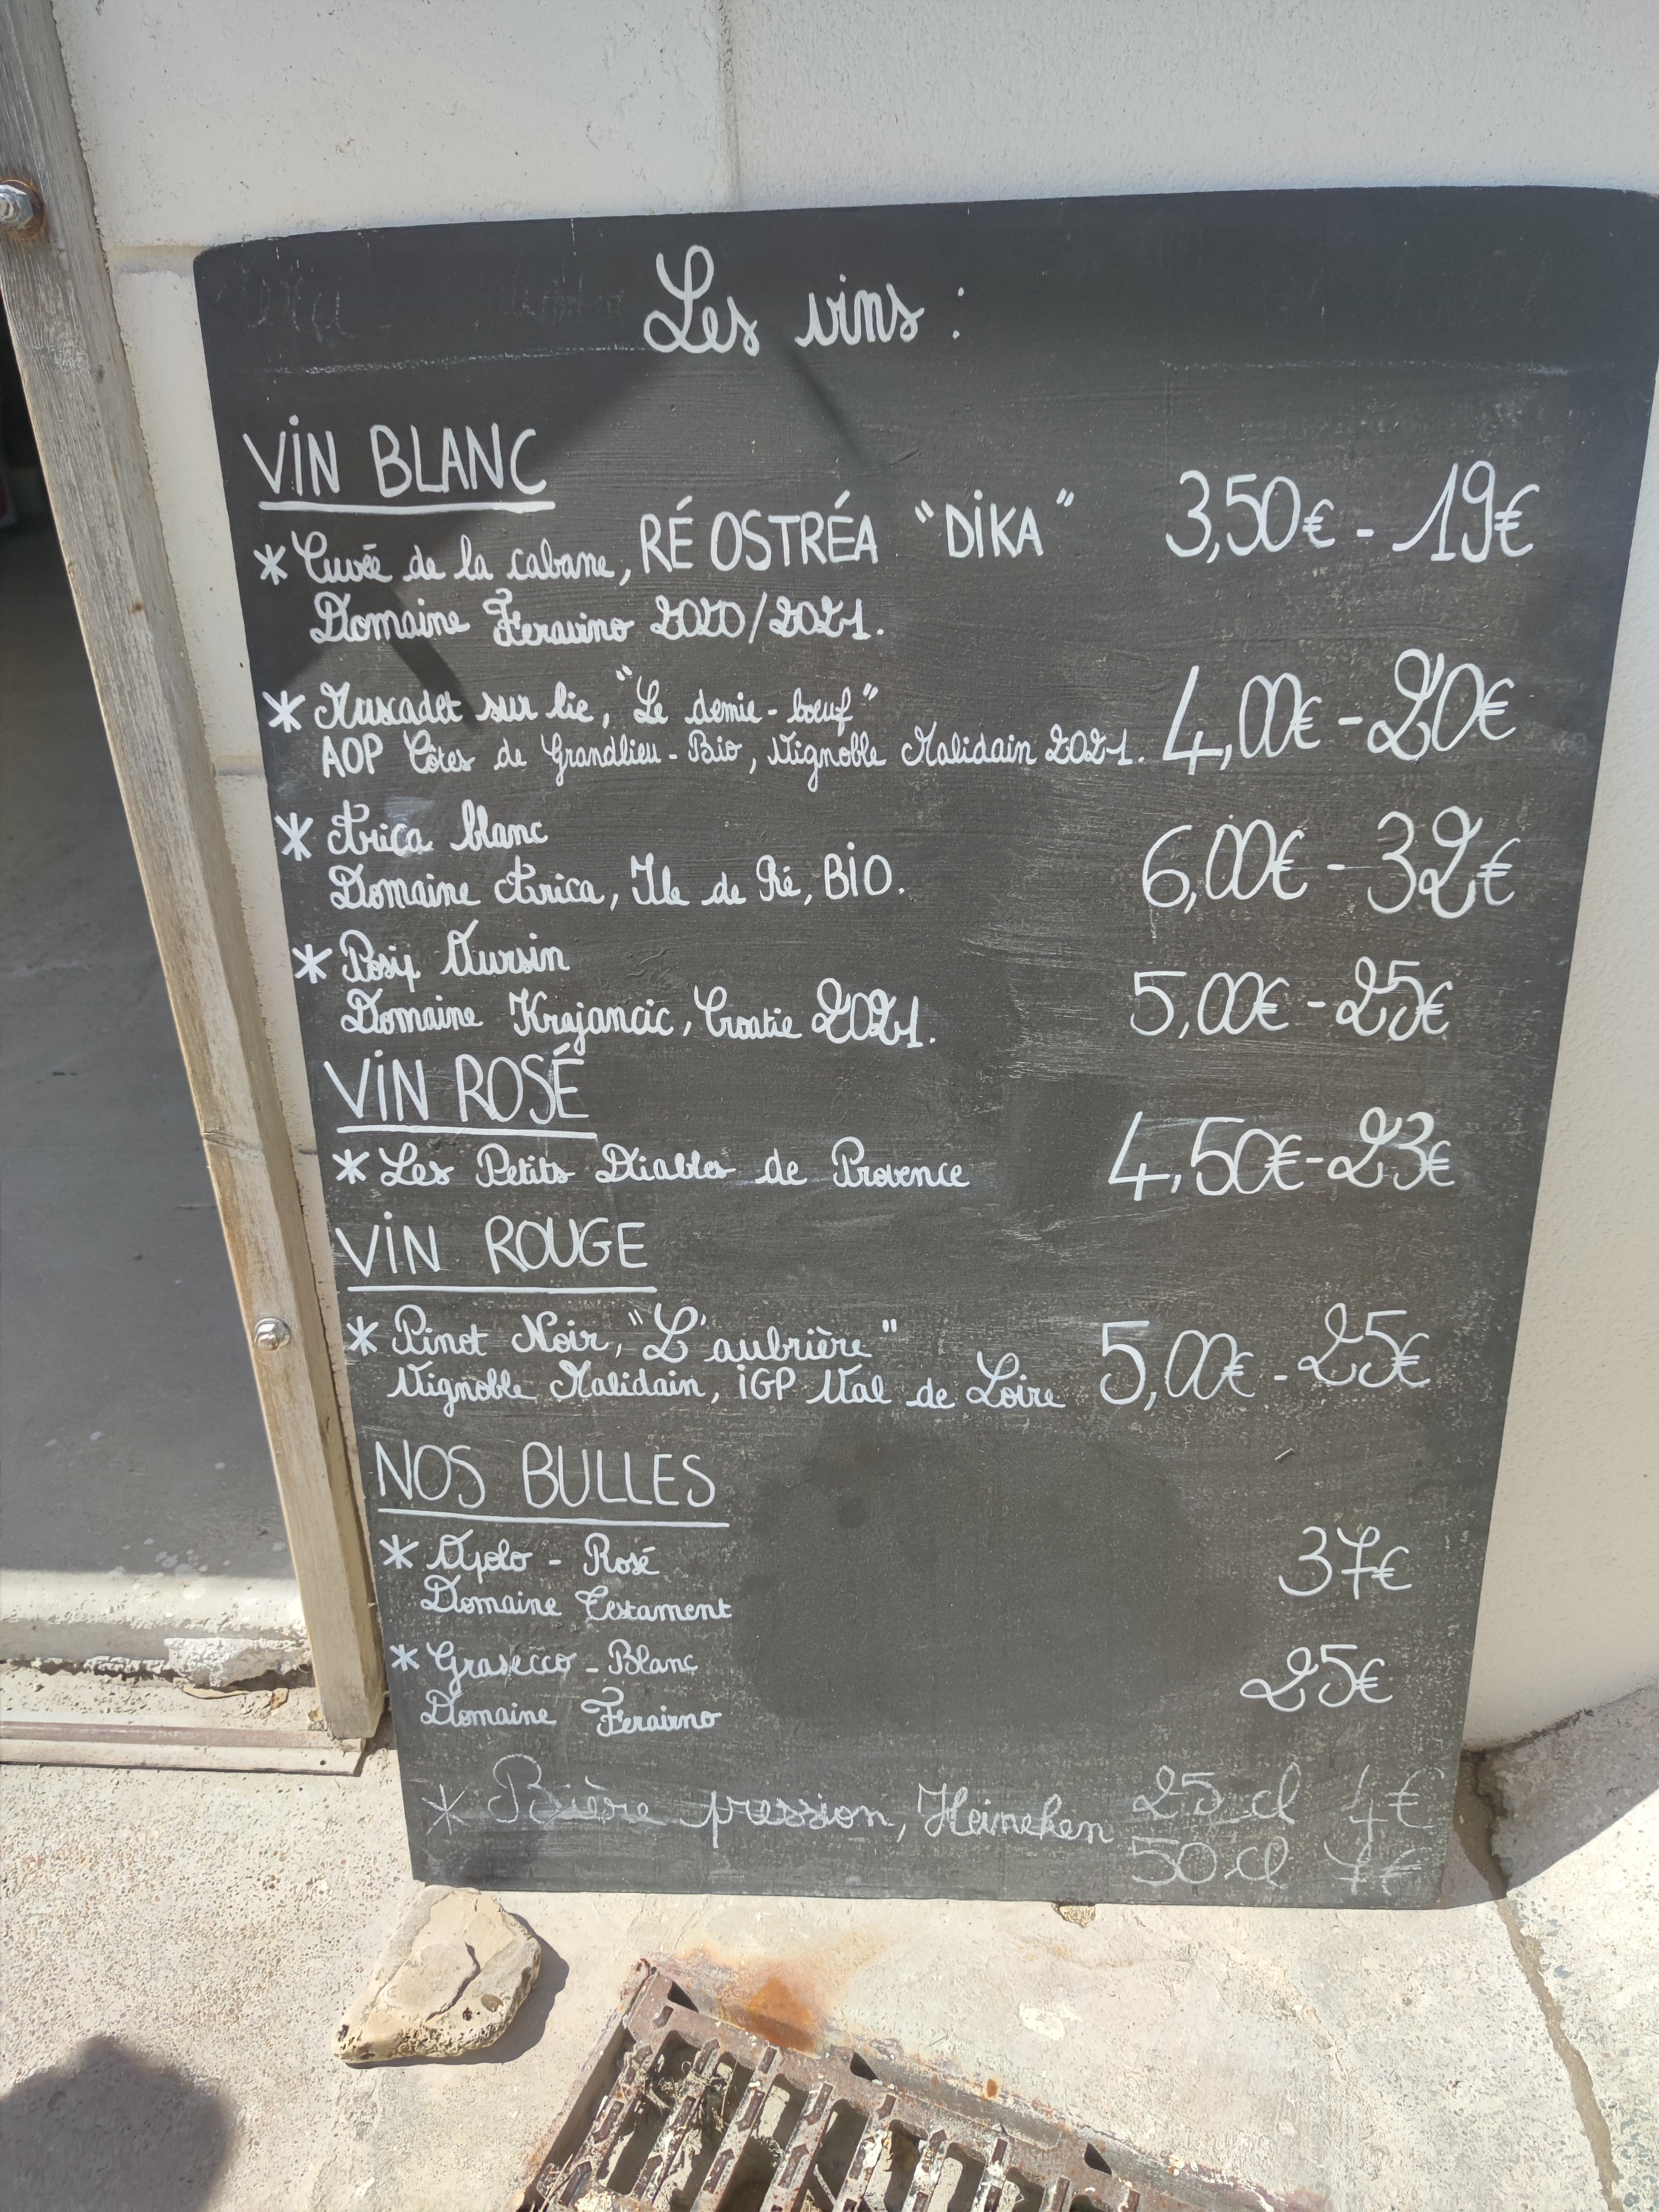 Les vins :
VIN BLANC
* Cuvée de la cabane, RÉ OSTRÉA "DIKA" 3,50€ - 19€
Domaine Feravino 2020/2021.
* Muscadet sur lie, "Le demie-bœuf"
AOP Côtes de Grandlieu - Bio, Vignoble Malidain 2021. 4,00€ - 20€
* Arica blanc
Domaine Arica, Ile de Ré, BIO. 6,00€ - 32€
* Posip Aursin
Domaine Krajancic, Croatie 2021. 5,00€ - 25€
VIN ROSÉ
* Les Petits Diables de Provence 4,50€ - 23€
VIN ROUGE
* Pinot Noir, "L'aubrière"
Vignoble Malidain, IGP Val de Loire 5,00€ - 25€
NOS BULLES
* Apolo - Rosé 37€
Domaine Testament
* Grasecco - Blanc 25€
Domaine Feravino
* Bière pression, Heineken 25 cl 4€
50 cl 7€